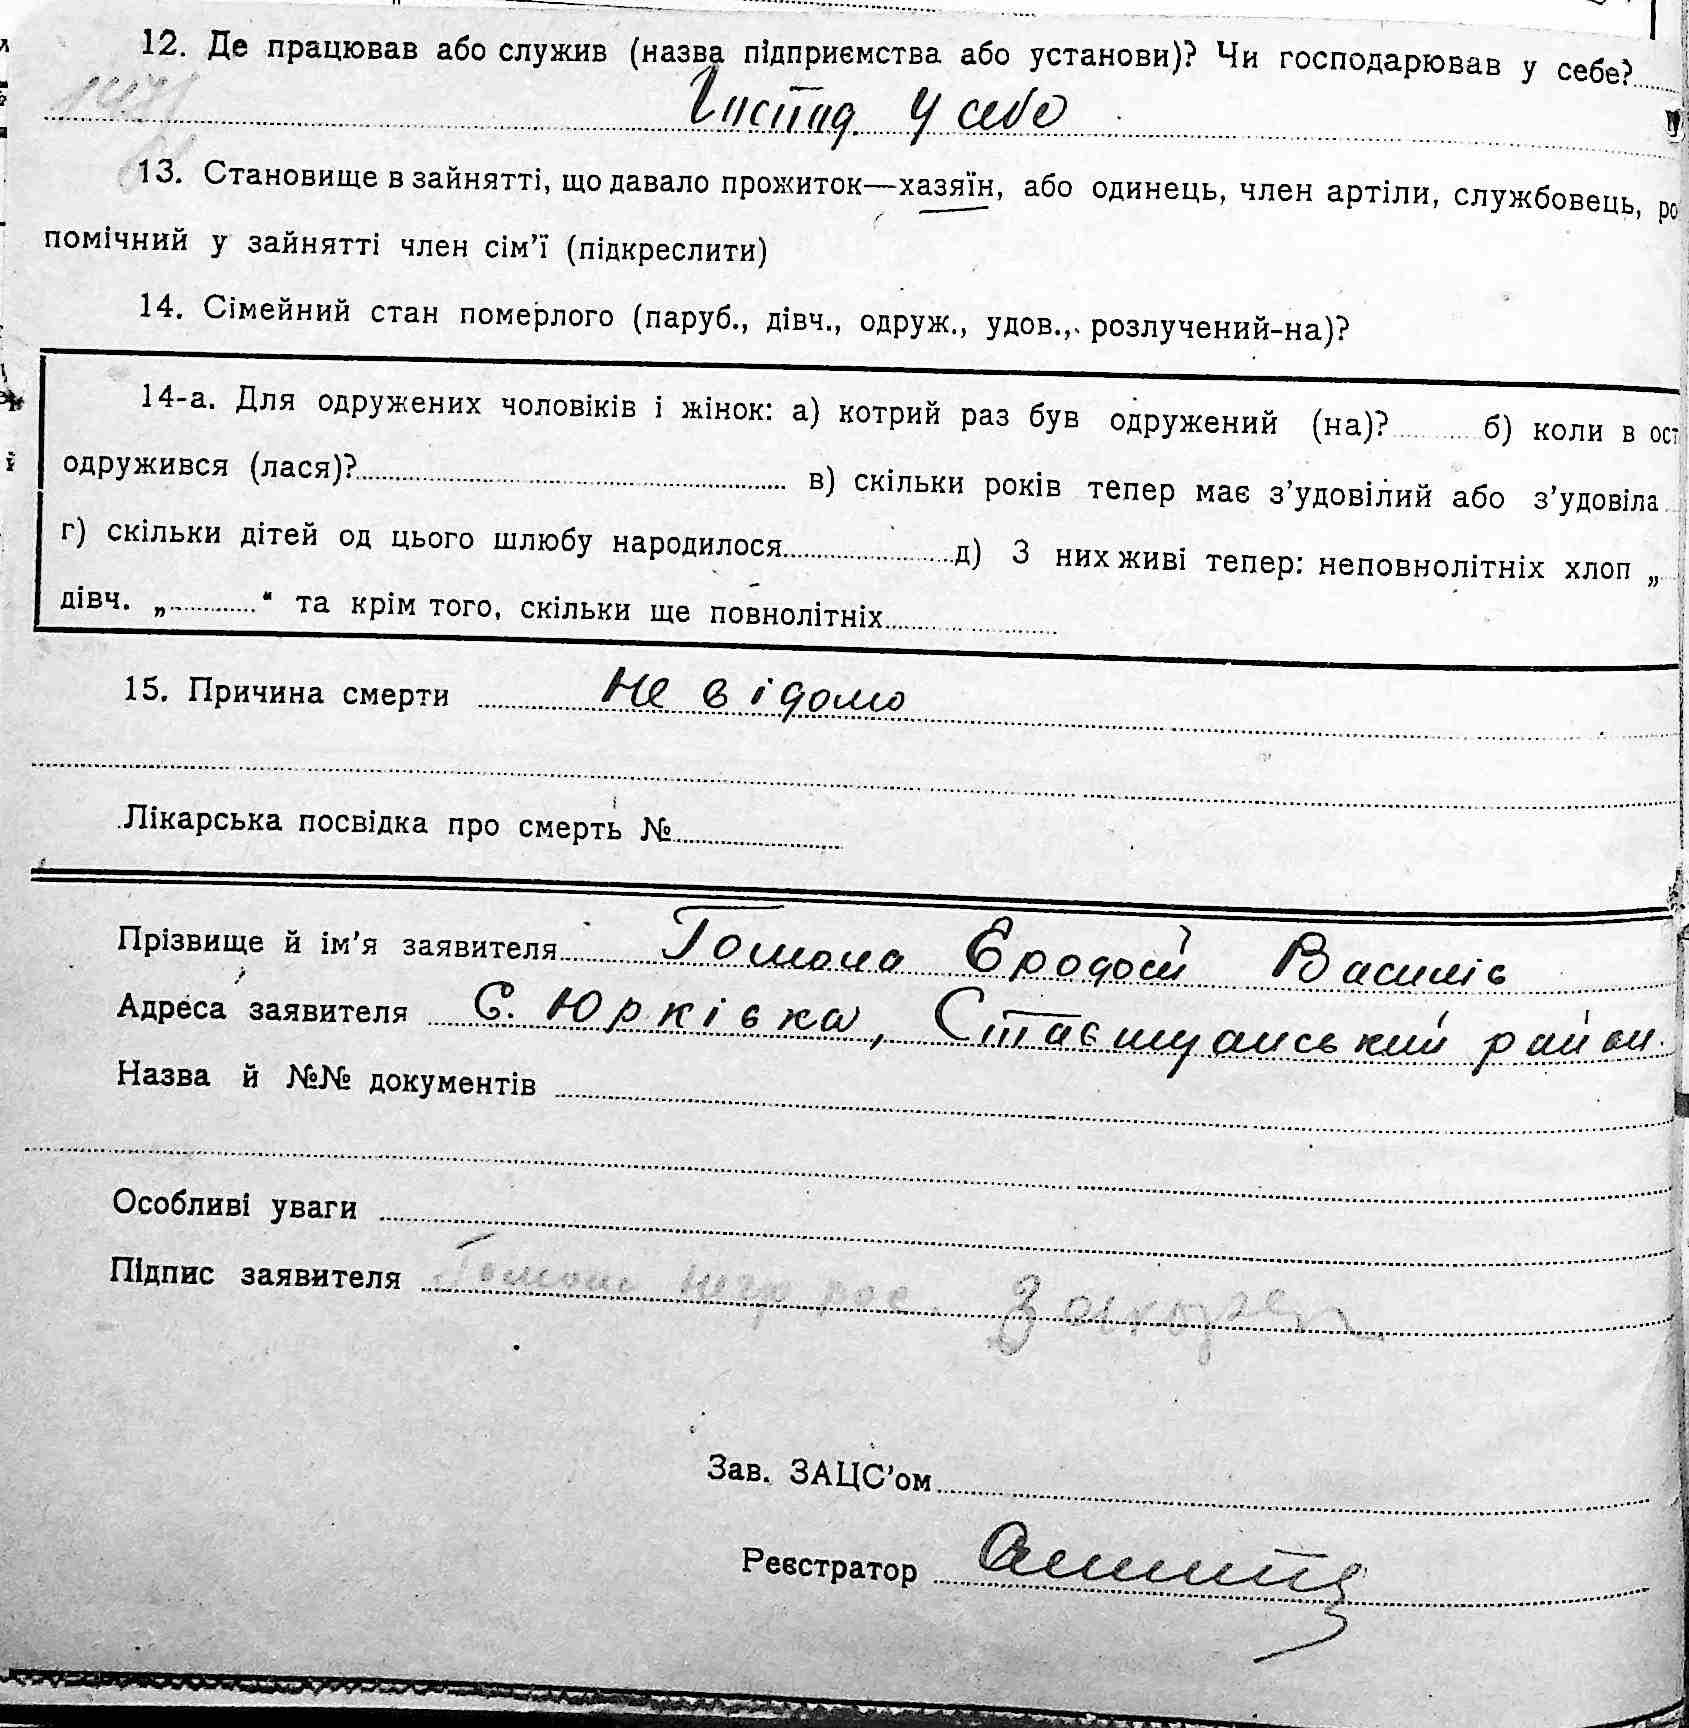 12. Де працював або служив (назва підприємства або установи)? Чи господарював у себе?
у себе
13. Становище в зайнятті, що давало прожиток—хазяїн, або одинець, член артіли, службовець, ро
помічний у зайнятті член сім'ї (підкреслити)
14. Сімейний стан померлого (паруб., дівч., одруж., удов., розлучений-на)?
14-а. Для одружених чоловіків і жінок: а) котрий раз був одружений (на)? б) коли в ост
одружився (лася)? в) скільки років тепер має з'удовілий або з'удовіла
г) скільки дітей од цього шлюбу народилося д) З них живі тепер: неповнолітніх хлоп „
дівч. „ “ та крім того, скільки ще повнолітніх
15. Причина смерти Не відомо
Лікарська посвідка про смерть №
Прізвище й ім'я заявителя Гомона Василів
Адреса заявителя С. Юрківка, район
Назва й №№ документів
Особливі уваги
Підпис заявителя
Зав. ЗАЦС'ом
Реєстратор